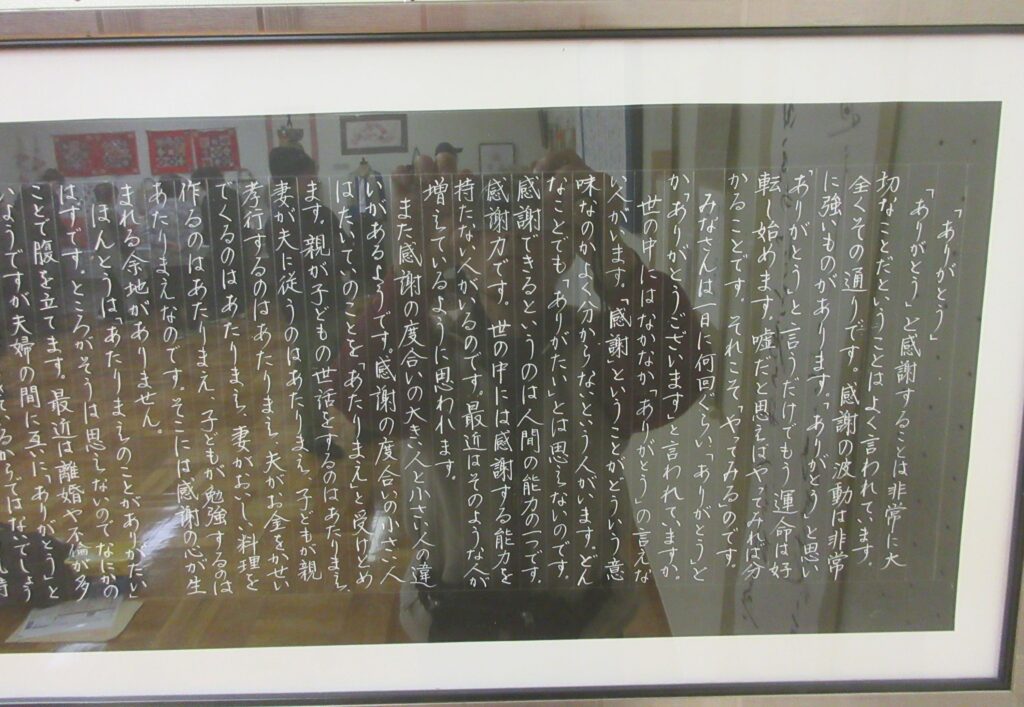 「ありがとう」
「ありがとう」と感謝することは非常に大
切なことだということはよく言われています。
全くその通りです。感謝の波動は非常
に強いものがあります。「ありがとう」と思い
「ありがとう」と言うだけでもう運命は好
転し始めます。嘘だと思えばやってみれば分
かることです。それこそ、やってみる」のです。
みなさんは一日に何回ぐらい「ありがとう」と
か「ありがとうございます」と言われていますか。
世の中にはなかなか「ありがとう」の言えな
い人がいます。「感謝」ということがどういう意
味なのか、よく分からないという人がいます。どん
なことでも「ありがたい」とは思えないのです。
感謝できるというのは人間の能力の一つです。
感謝力です。世の中には感謝する能力を
持たない人がいるのです。最近はそのような人が
増えているように思われます。
また感謝の度合いの大きい人と小さい人の違
いがあるようです。感謝の度合いの小さい人
はたいていのことを、あたりまえ、と受けとめ
ます。親が子どもの世話をするのはあたりまえ、
妻が夫に従うのはあたりまえ、夫がお金をかせい
でくるのはあたりまえ、子どもが親
孝行するのはあたりまえ、妻がおいしい料理を
作るのはあたりまえ、子どもが勉強するのは
あたりまえなのです。そこには感謝の心が生
まれる余地がありません。
ほんとうはあたりまえのことがありがたい
はずです。ところがそうは思えないのでなにかの
ことで腹を立てます。最近は離婚や不倫が多
いようですが夫婦の間に互いに「ありがとう」と